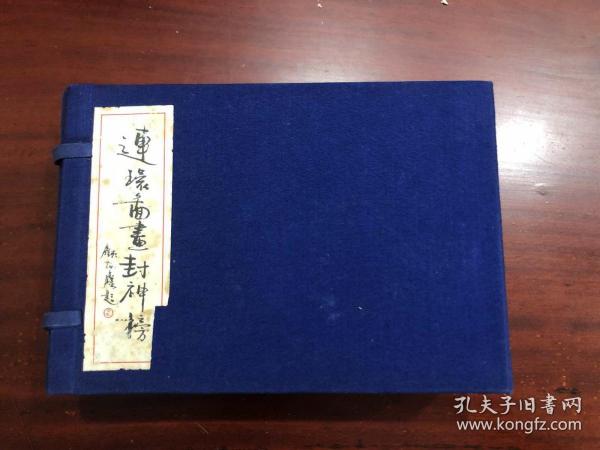 連環畫畫封神榜
孔夫子旧书网
www.kongfz.com